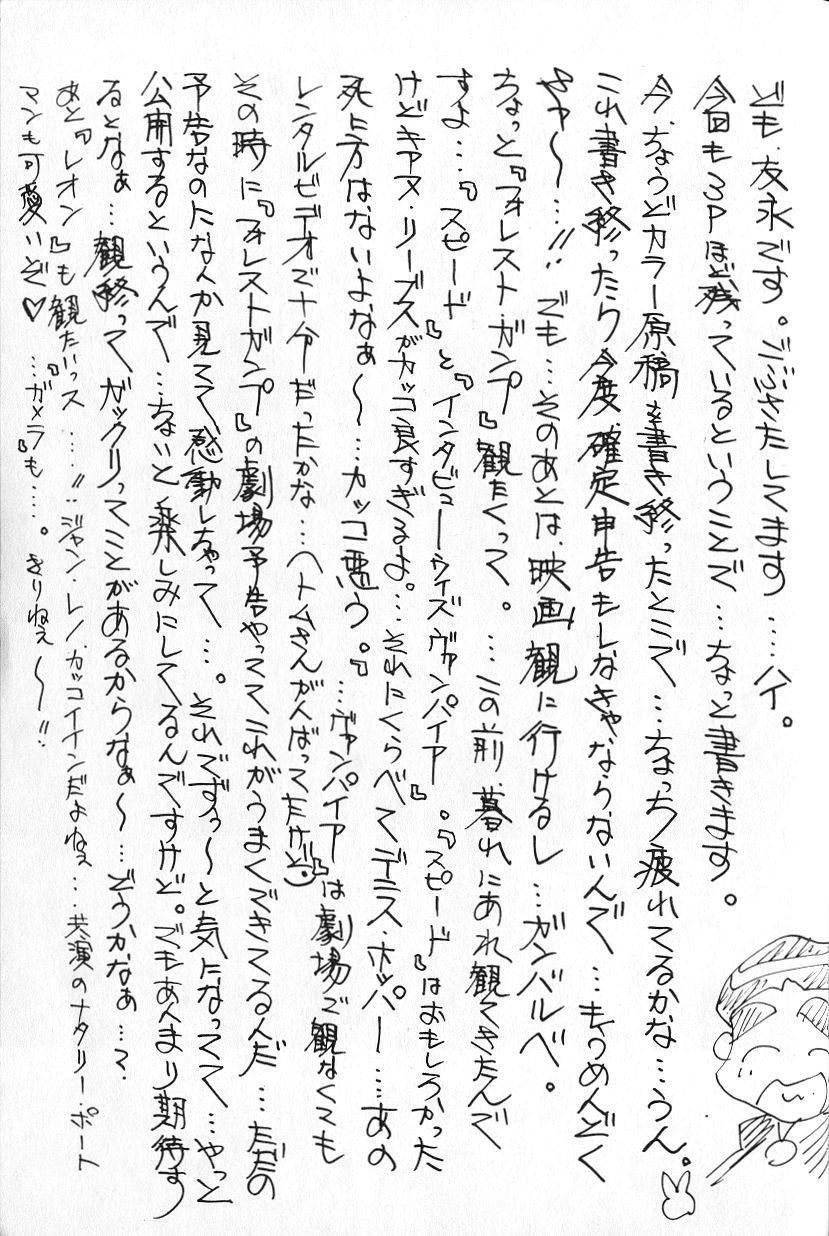 ども、友永です。ごぶさたしてます……ハイ。
今回も3Pほど残っているということで…ちょっと書きます。
今、ちょうどカラー原稿を書き終ったとこで…ちょっち疲れてるかな…うん。
これ書き終ったら今度、確定申告もしなきゃならないんで…もうめんどく
さァ〜…!! でも…そのあとは、映画観に行けるし…ガンバルベ。
ちょっと『フォレスト・ガンプ』観たくって。…この前、暮れにあれ観てきたんで
すよ…『スピード』と『インタビュー・ウィズ・ヴァンパイア』。『スピード』はおもしろかった
けどキアヌ・リーブスがカッコ良すぎるよ。…それにくらべてデニス・ホッパー……あの
死に方はないよなぁ〜…カッコ悪う。『…ヴァンパイア』は劇場で観なくても
レンタルビデオで十分だったかな…トムさんがんばってたけど
その時に『フォレストガンプ』の劇場予告やっててこれがうまくできてるんだ…ただの
予告なのになんか見てて、感動しちゃって…。それでずぅ〜と気になってて…やっと
公開するというんで…ちょいと楽しみにしてるんですけど。でもあんまり期待す
るとなぁ…観終ってガックリってことがあるからなぁ〜…どうかなぁ…て.
あと『レオン』も観たいっス……!! ジャン・レノ、カッコイインだよねぇ…共演のナタリー・ポート
マンも可愛いぞ♡ …『ガメラ』も……。きりねぇ〜!!